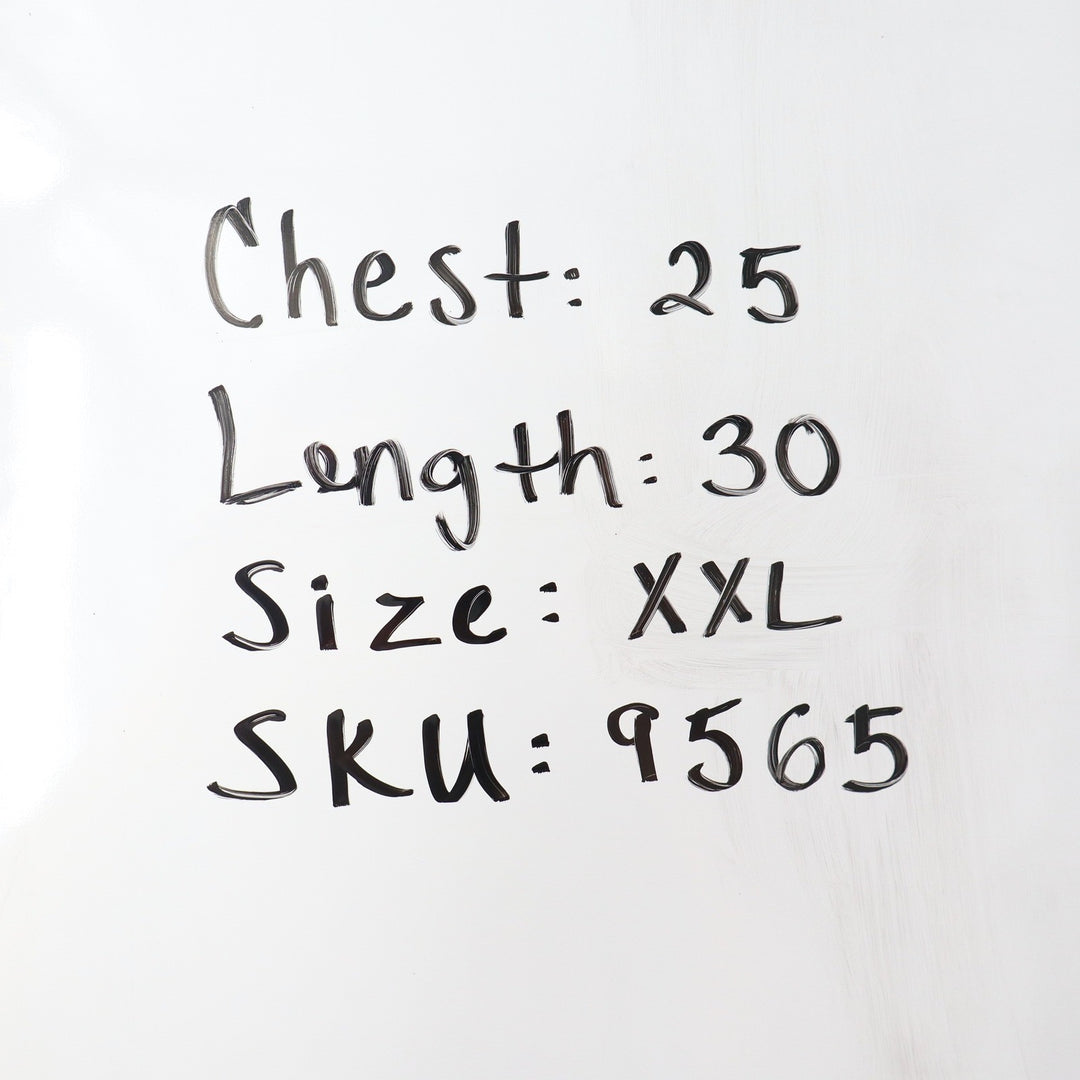 Chest: 25
Length: 30
Size: XXL
SKU: 9565